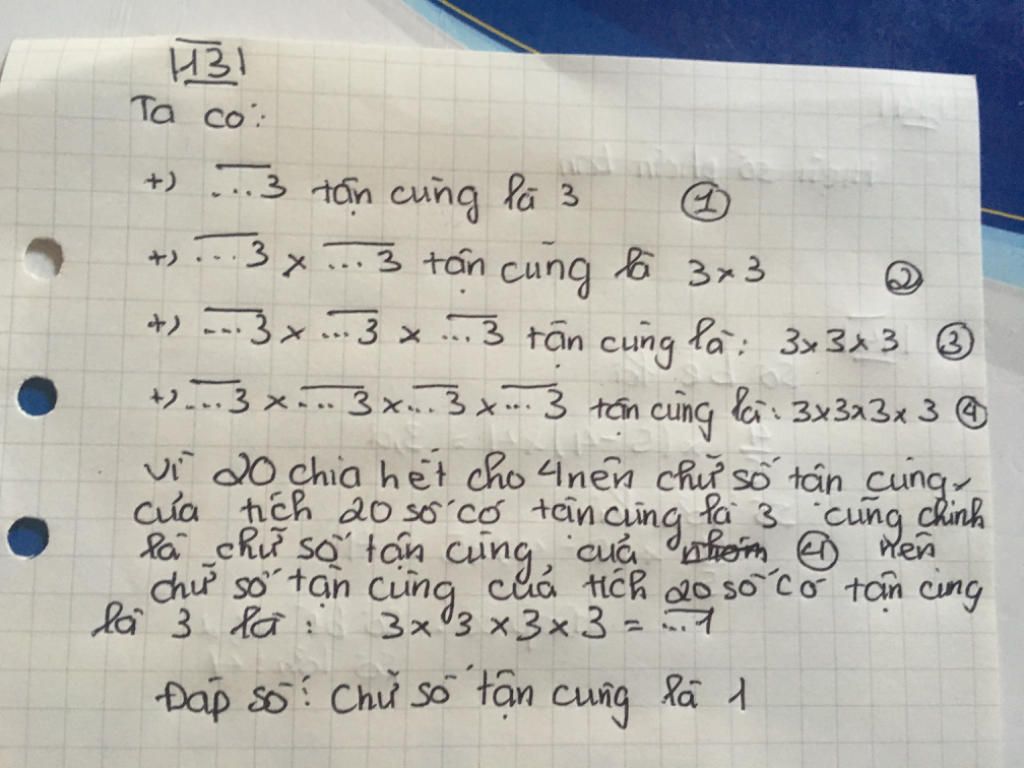 H3
Ta có:
+) ...3 tận cùng là 3 ①
+) ...3 x ...3 tận cùng là 3x3 ②
+) ...3 x ...3 x ...3 tận cùng là: 3x3x3 ③
+) ...3 x ...3 x ...3 x ...3 tận cùng là: 3x3x3x3 ④
Vì 20 chia hết cho 4 nên chữ số tận cùng
của tích 20 số có tận cùng là 3 cũng chính
là chữ số tận cùng của ④ nên
chữ số tận cùng của tích 20 số có tận cùng
là 3 là: 3 x 3 x 3 x 3 = ...1
Đáp số: Chữ số tận cùng là 1